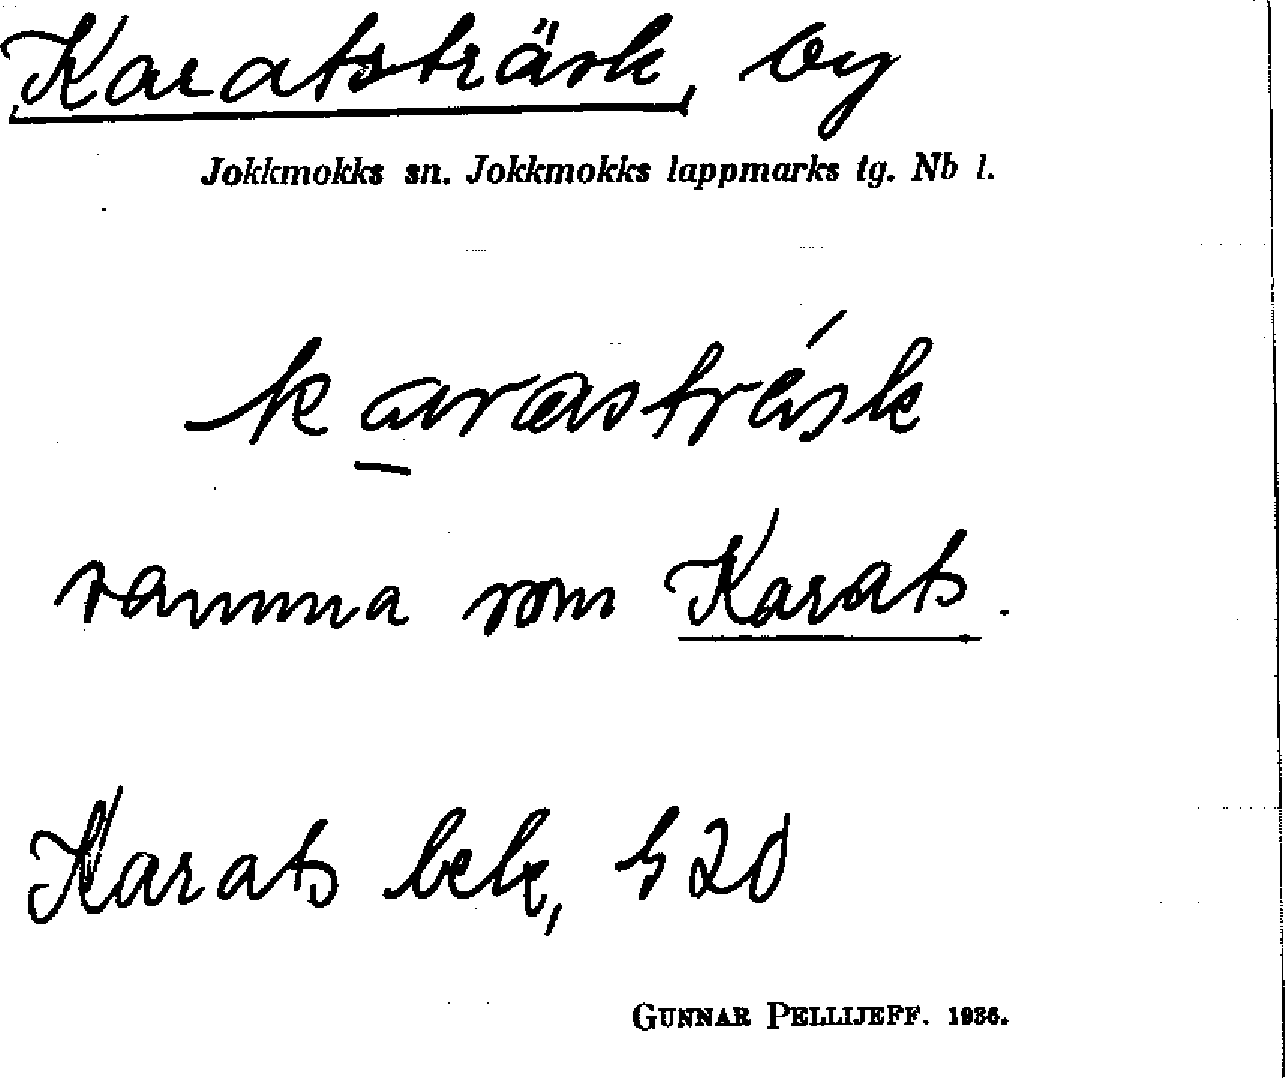 Karatsträsk, by
Jokkmokks sn. Jokkmokks lappmarks tg. Nb l.
karastrásk
samma som Karats.
Karats
GUNNAR PELLIJEFF. 1936.